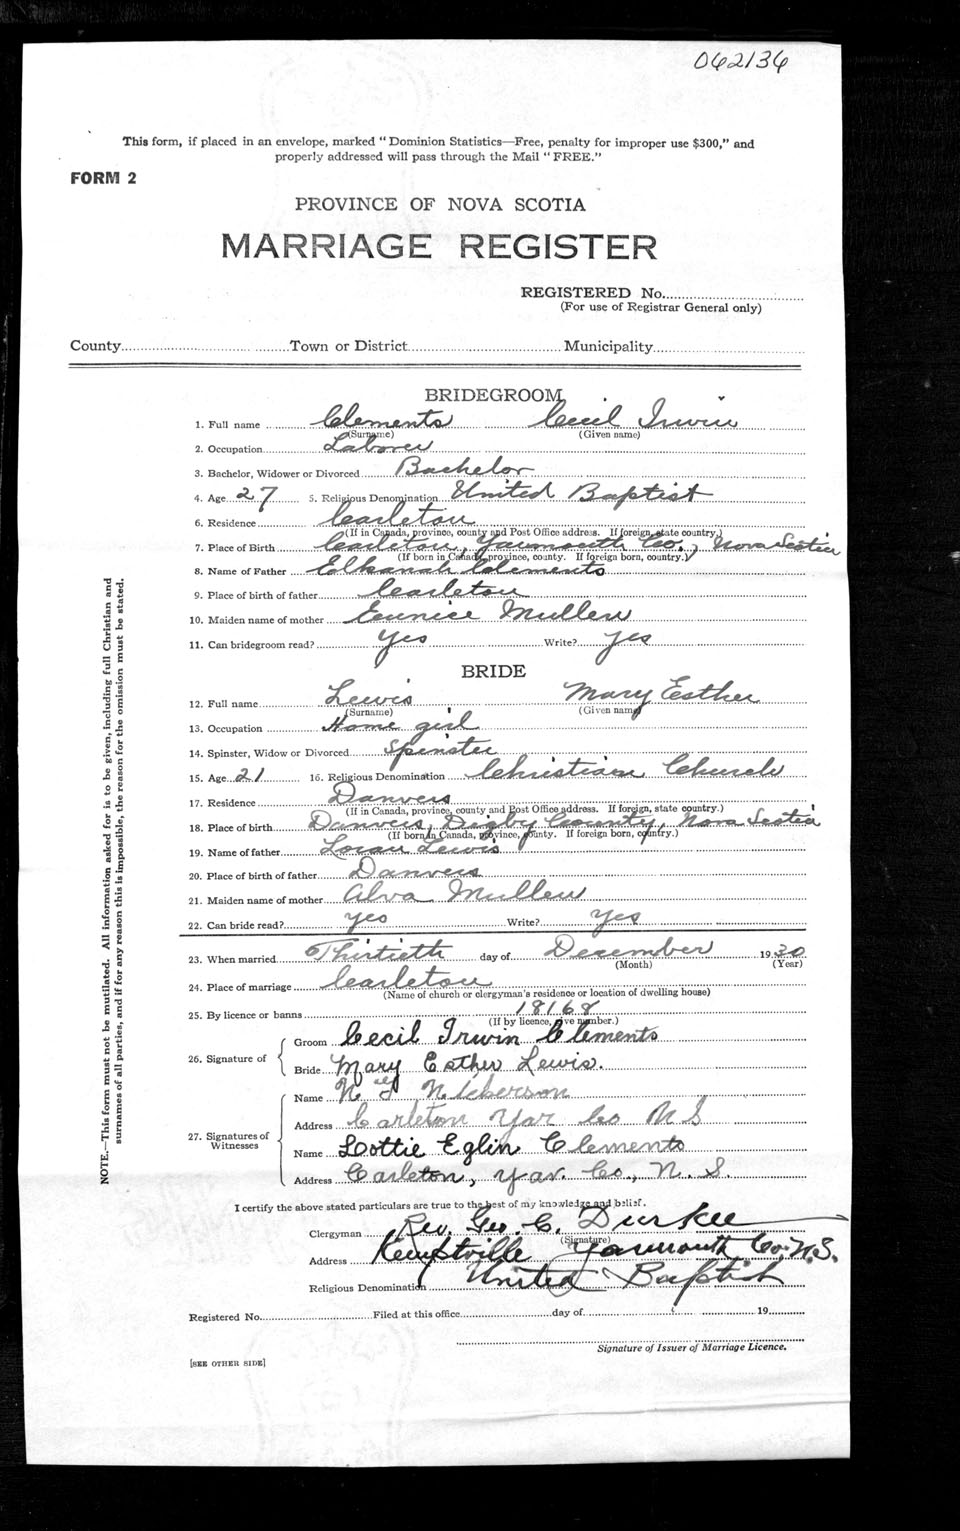 062136
This form, if placed in an envelope, marked "Dominion Statistics—Free, penalty for improper use $300," and
properly addressed will pass through the Mail "FREE."
FORM 2
PROVINCE OF NOVA SCOTIA
MARRIAGE REGISTER
REGISTERED No.
(For use of Registrar General only)
County Town or District Municipality
BRIDEGROOM
1. Full name Clements Cecil Irwin
(Surname) (Given name)
2. Occupation Laborer
3. Bachelor, Widower or Divorced Bachelor
4. Age 27 5. Religious Denomination United Baptist
6. Residence Carleton
(If in Canada, province, county and Post Office address. If foreign, state country.)
7. Place of Birth Carleton, Yarmouth Co., Nova Scotia
(If born in Canada, province, county. If foreign born, country.)
8. Name of Father Elkanah Clements
9. Place of birth of father Carleton
10. Maiden name of mother Eunice Mullen
11. Can bridegroom read? yes Write? yes
BRIDE
12. Full name Lewis Mary Esther
(Surname) (Given name)
13. Occupation Home girl
14. Spinster, Widow or Divorced Spinster
15. Age 21 16. Religious Denomination Christian Church
17. Residence Danvers
(If in Canada, province, county and Post Office address. If foreign, state country.)
18. Place of birth Danvers, Digby County, Nova Scotia
(If born in Canada, province, county. If foreign born, country.)
19. Name of father Loran Lewis
20. Place of birth of father Danvers
21. Maiden name of mother Alva Mullen
22. Can bride read? yes Write? yes
23. When married Thirtieth day of December 1930
(Month) (Year)
24. Place of marriage Carleton
(Name of church or clergyman's residence or location of dwelling house)
25. By licence or banns 18168
(If by licence, give number.)
26. Signature of Groom Cecil Irwin Clements
Bride Mary Esther Lewis.
27. Signatures of Witnesses Name Nickerson
Address Carleton Yar Co N S
Name Lottie Eglin Clements
Address Carleton, Yar. Co., N. S.
I certify the above stated particulars are true to the best of my knowledge and belief.
Clergyman Rev. Geo. C. Durkee
(Signature)
Address Kemptville Yarmouth Co. N.S.
Religious Denomination United Baptist
Registered No. Filed at this office day of 19
Signature of Issuer of Marriage Licence.
[SEE OTHER SIDE]
NOTE.—This form must not be mutilated. All information asked for is to be given, including full Christian and
surnames of all parties, and if for any reason this is impossible, the reason for the omission must be stated.